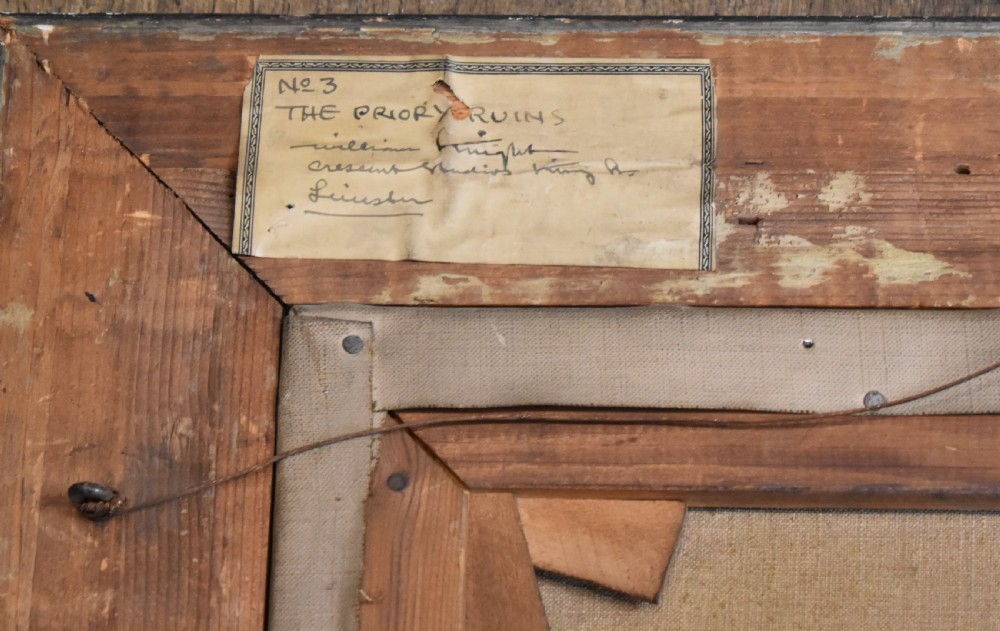 No 3
THE PRIORY RUINS
William Knight
Crescent Studios King St
Leicester